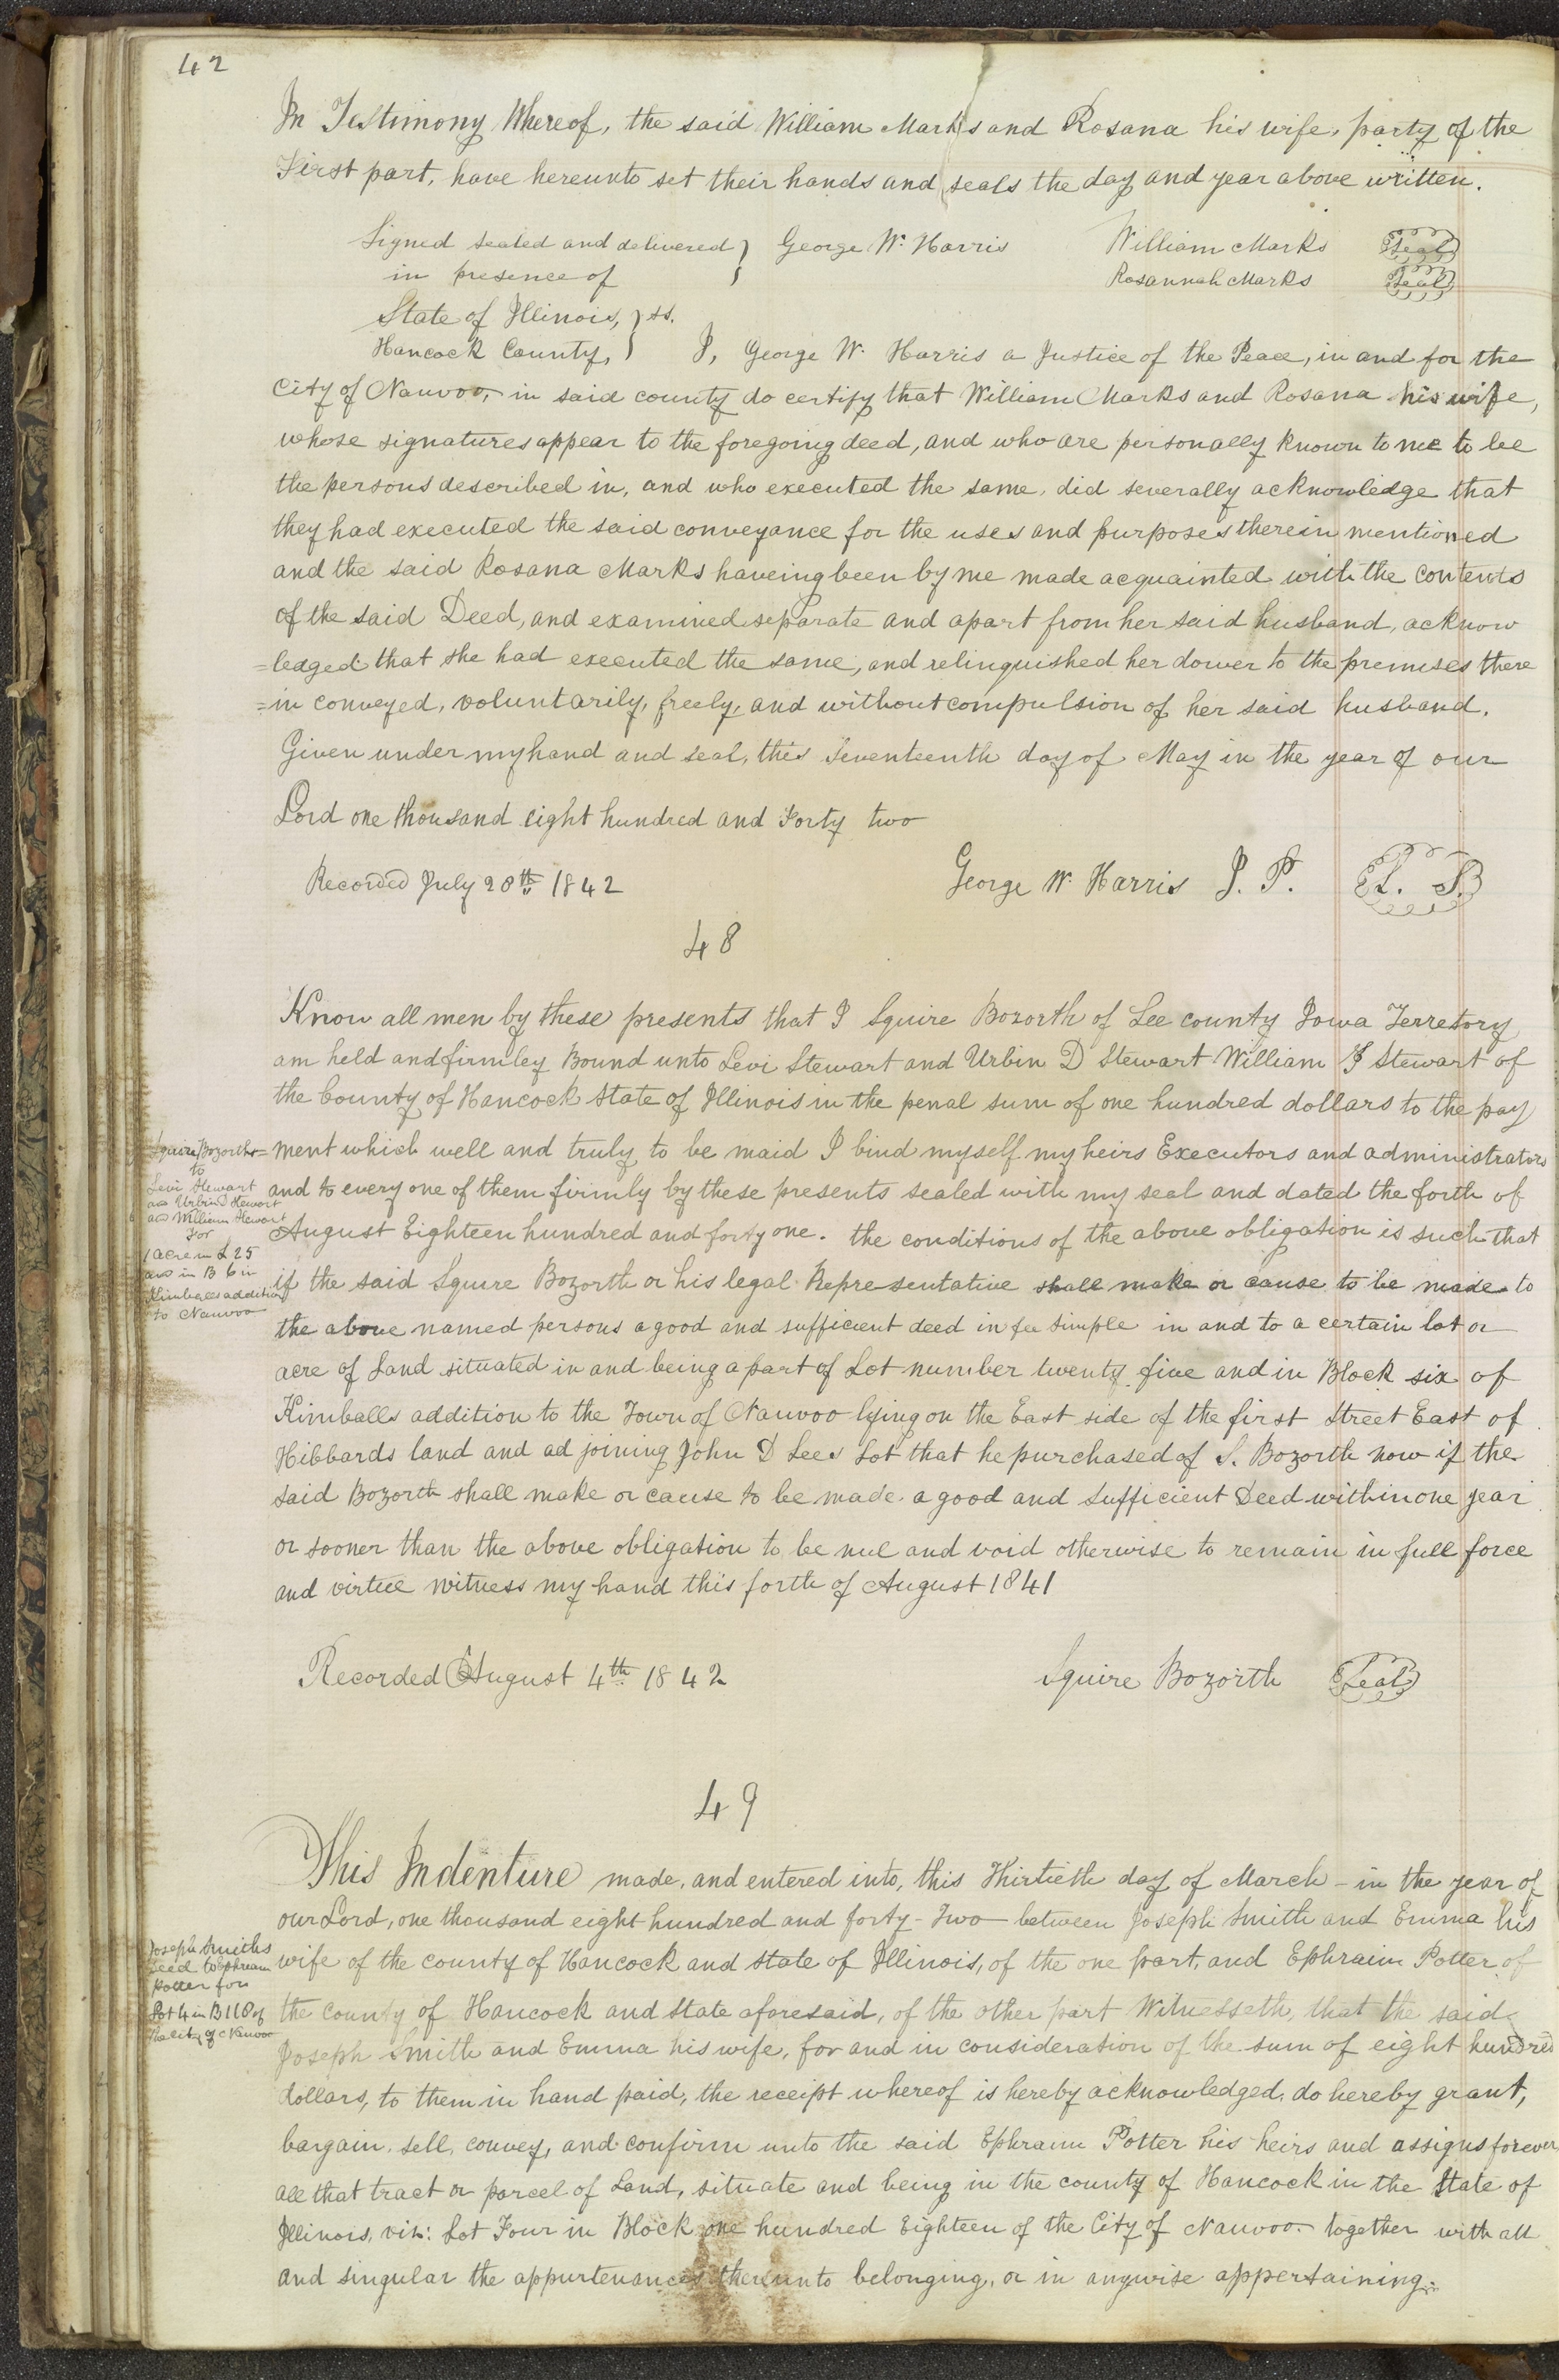 42
In Testimony Whereof, the said William Marks and Rosana his wife, party of the
First part, have hereunto set their hands and seals the day and year above written.
Signed sealed and delivered } George W. Harris William Marks Seal
in presence of } Rosannah Marks Seal
State of Illinois, } ss.
Hancock County, } I, George W. Harris a Justice of the Peace, in and for the
City of Nauvoo, in said county do certify that William Marks and Rosana his wife,
whose signatures appear to the foregoing deed, and who are personally known to me to be
the persons described in, and who executed the same, did severally acknowledge that
they had executed the said conveyance for the uses and purposes therein mentioned
and the said Rosana Marks haveing been by me made acquainted with the contents
of the said Deed, and examined separate and apart from her said husband, acknow
=ledged that she had executed the same, and relinquished her dower to the premises there
=in conveyed, voluntarily, freely, and without compulsion of her said husband.
Given under my hand and seal, this Seventeenth day of May in the year of our
Lord one thousand eight hundred and Forty two
Recorded July 20th 1842 George W. Harris J. P. L. S.
48
Know all men by these presents that I Squire Bozorth of Lee county Iowa Terretory
am held and firmley Bound unto Levi Stewart and Urbin D Stewart William J Stewart of
the County of Hancock State of Illinois in the penal sum of one hundred dollars to the pay
=ment which well and truly to be maid I bind myself my heirs Executors and administrators
and to every one of them firmly by these presents sealed with my seal and dated the forth of
August Eighteen hundred and forty one. the conditions of the above obligation is such that
if the said Squire Bozorth or his legal Representative shall make or cause to be made to
the above named persons a good and sufficient deed in fee simple in and to a certain lot or
acre of Land situated in and being a part of Lot number twenty five and in Block six of
Kimballs addition to the Town of Nauvoo lying on the East side of the first Street East of
Hibbards land and adjoining John D Lees Lot that he purchased of S. Bozorth now if the
said Bozorth shall make or cause to be made a good and sufficient Deed within one year
or sooner than the above obligation to be nul and void otherwise to remain in full force
and virtue witness my hand this forth of August 1841
Squire Bozorth
to
Levi Stewart
and Urbin D Stewart
and William Stewart
For
1 acre in L 25
and in B 6 in
Kimballs addition
to Nauvoo
Recorded August 4th 1842 Squire Bozorth Seal
49
This Indenture made, and entered into, this Thirtieth day of March - in the year of
our Lord, one thousand eight hundred and forty-Two between Joseph Smith and Emma his
wife of the county of Hancock and state of Illinois, of the one part, and Ephraim Potter of
the county of Hancock and State aforesaid, of the other part Witnesseth, that the said
Joseph Smith and Emma his wife, for and in consideration of the sum of eight hundred
dollars, to them in hand paid, the receipt whereof is hereby acknowledged, do hereby grant,
bargain, sell, convey, and confirm unto the said Ephraim Potter his heirs and assigns forever
all that tract or parcel of Land, situate and being in the county of Hancock in the State of
Illinois, viz: Lot Four in Block one hundred Eighteen of the City of Nauvoo together with all
and singular the appurtenances thereunto belonging, or in anywise appertaining.
Joseph Smiths
Deed to Ephream
Potter for
Lot 4 in B 118 of
the city of Nauvoo